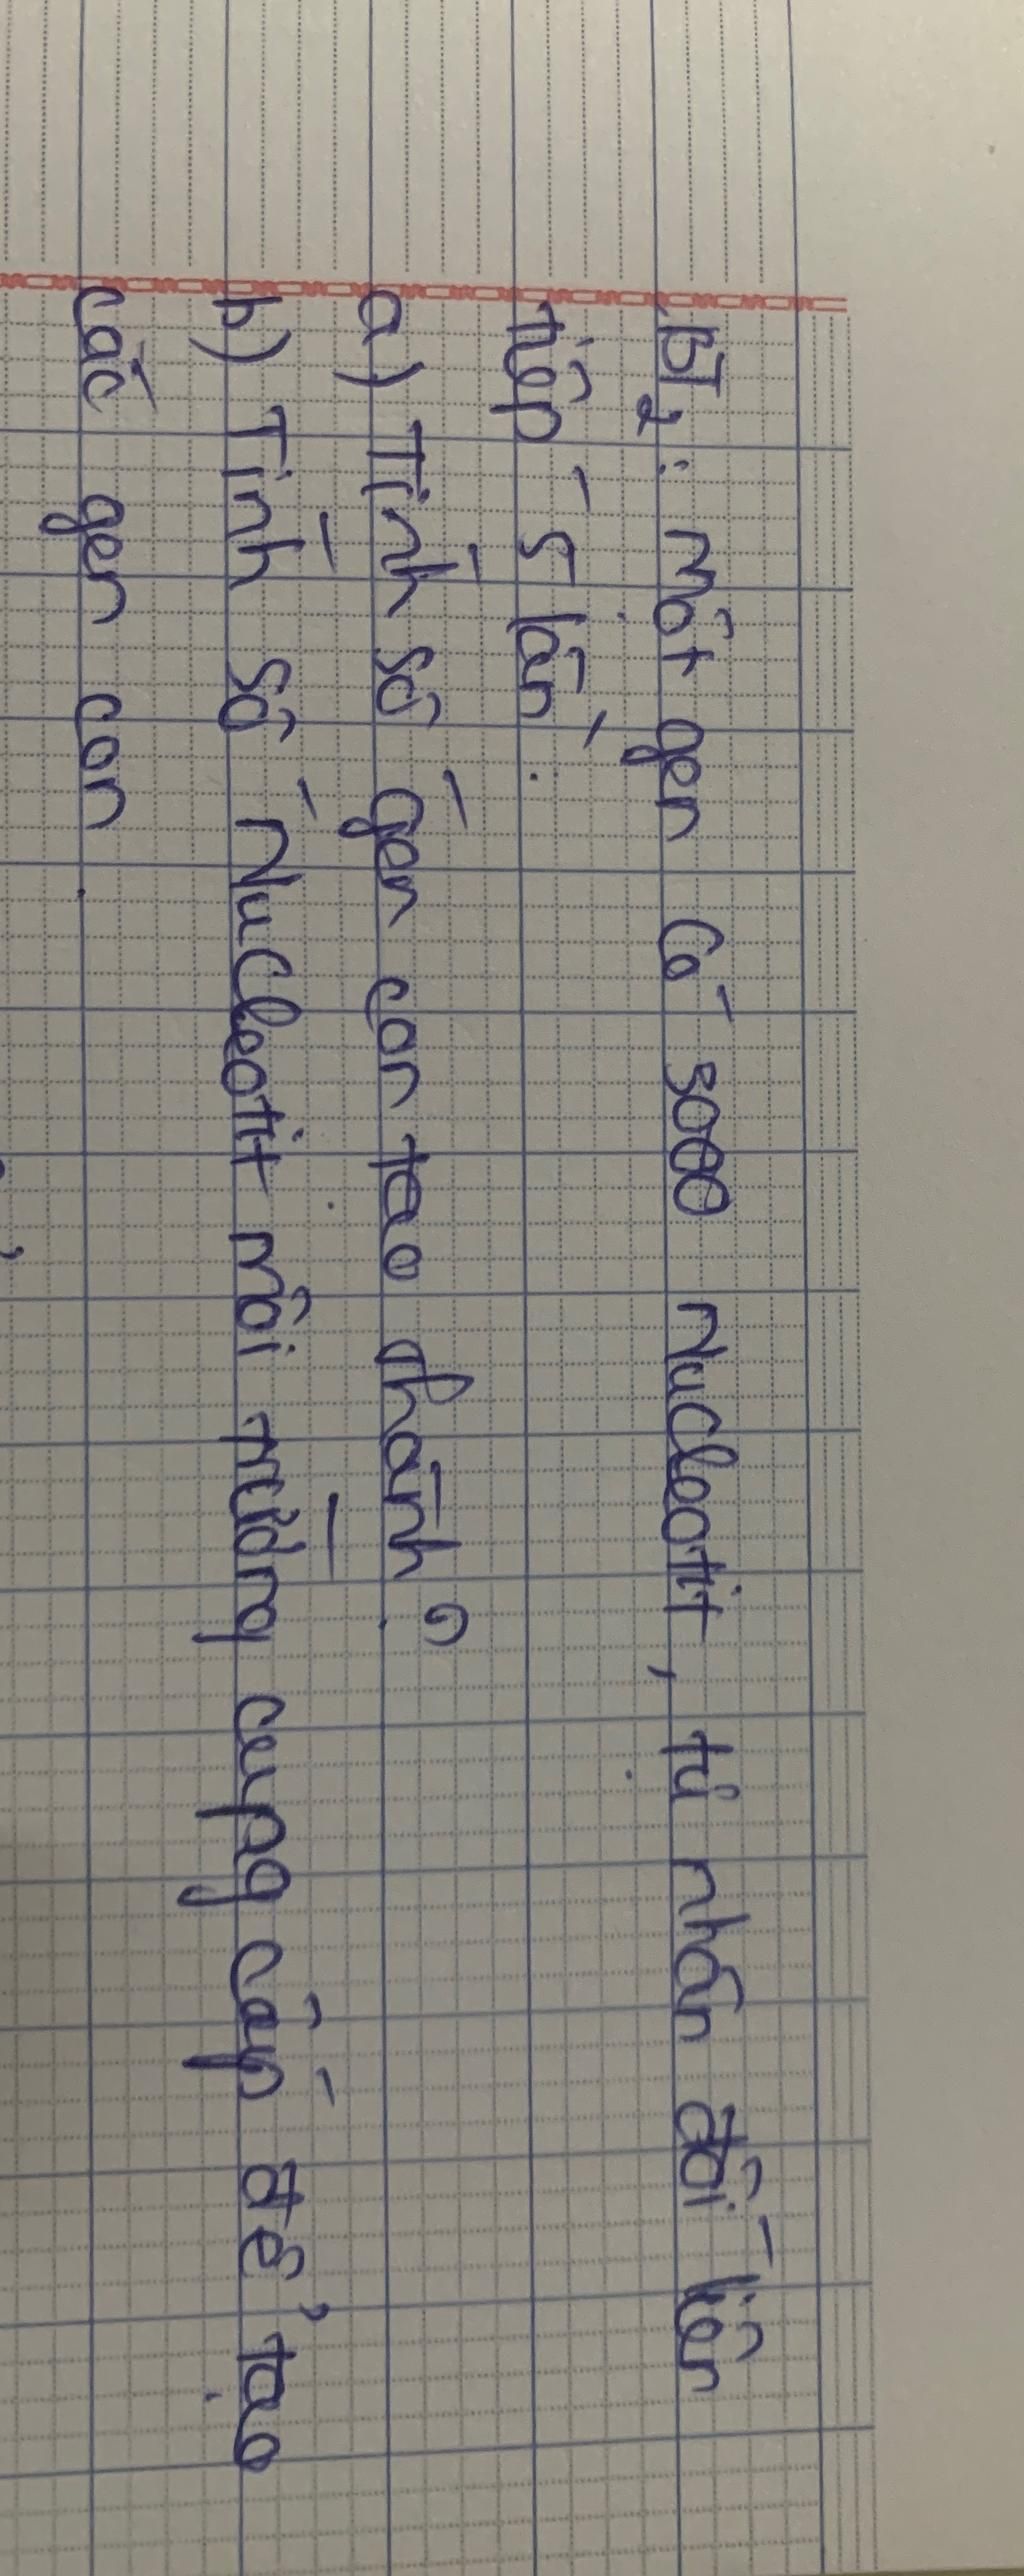 BT2: Một gen có 3000 Nucleotit, tự nhân đôi liên
tiếp 5 lần.
a) Tính số gen con tạo thành?
b) Tính số Nucleotit môi trường cung cấp để tạo
các gen con.